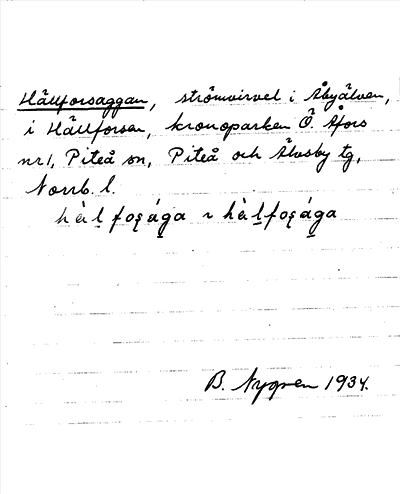 Hällforsaggan, strömvirvel i Åbyälven,
i Hällforsen, kronoparken Ö. Åfors
nr 1, Piteå sn, Piteå och Älvsby tg,
Norrb. l.
B. Nygren 1934.